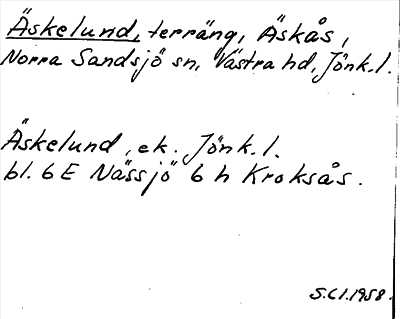 Äskelund, terräng, Äskås,
Norra Sandsjö sn, Västra hd, Jönk.l.
Äskelund, ek. Jönk.l.
bl. 6E Nässjö 6 h Kroksås.
S.Cl.1958.